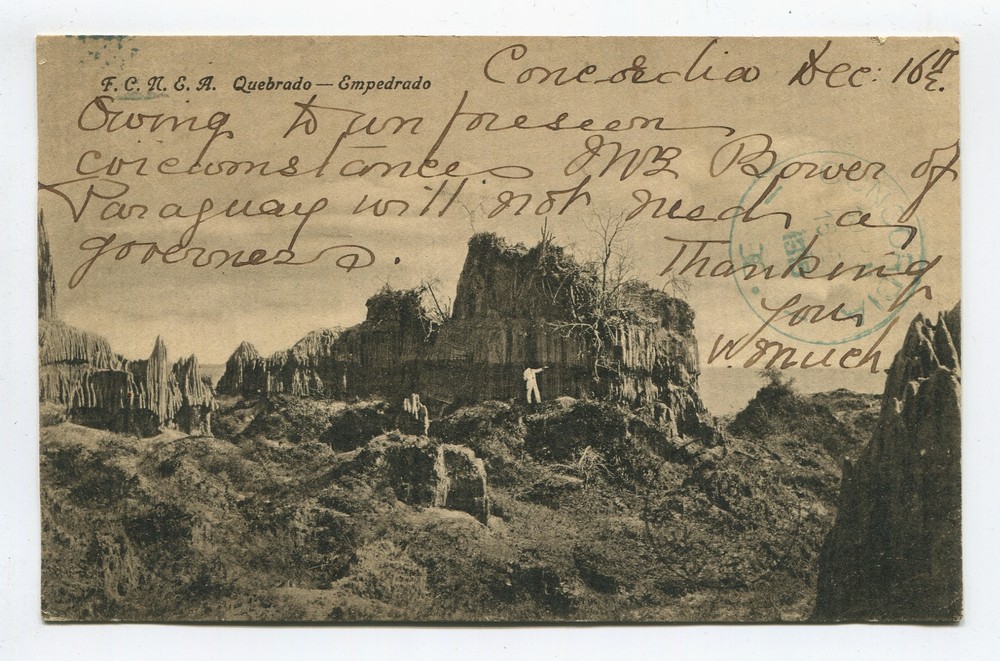 F. C. N. E. A. Quebrado — Empedrado
Concordia Dec: 16th
Owing to unforeseen
circumstances Mr Bower of
Paraguay will not need a
governess.
Thanking
you
v. much
CONCORDIA